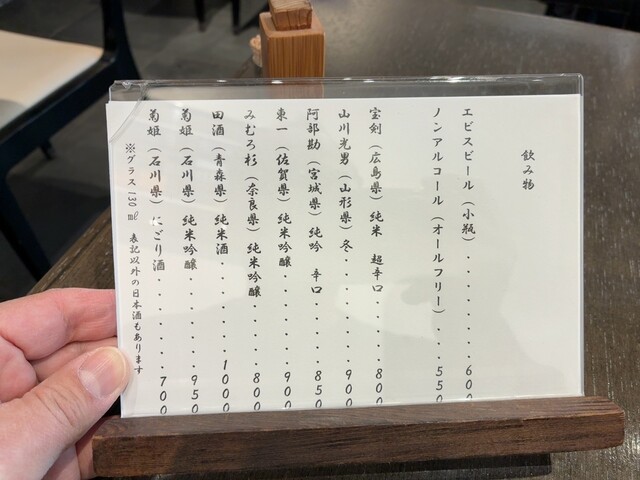 飲み物
エビスビール（小瓶）．．．．．．．600
ノンアルコール（オールフリー）．．．550
宝剣（広島県）純米　超辛口．．．．．800
山川光男（山形県）冬．．．．．．．．900
阿部勘（宮城県）純吟　辛口．．．．．850
東一（佐賀県）純米吟醸．．．．．．．900
みむろ杉（奈良県）純米吟醸．．．．．800
田酒（青森県）純米酒．．．．．．．1000
菊姫（石川県）純米吟醸．．．．．．．950
菊姫（石川県）にごり酒．．．．．．．700
※グラス130㎖　表記以外の日本酒もあります